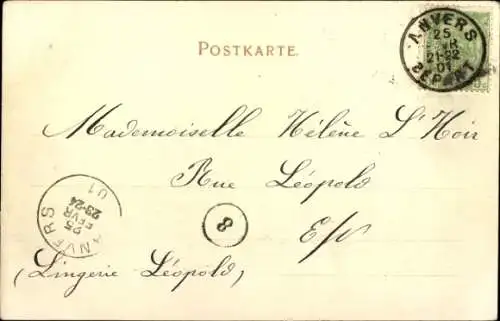 POSTKARTE.
ANVERS
25
21-22
01
DEPART
Mademoiselle Hélène L'Hoir
Rue Léopold
E/V
(Lingerie Léopold)
8
ANVERS
25
FEVR
23-24
01